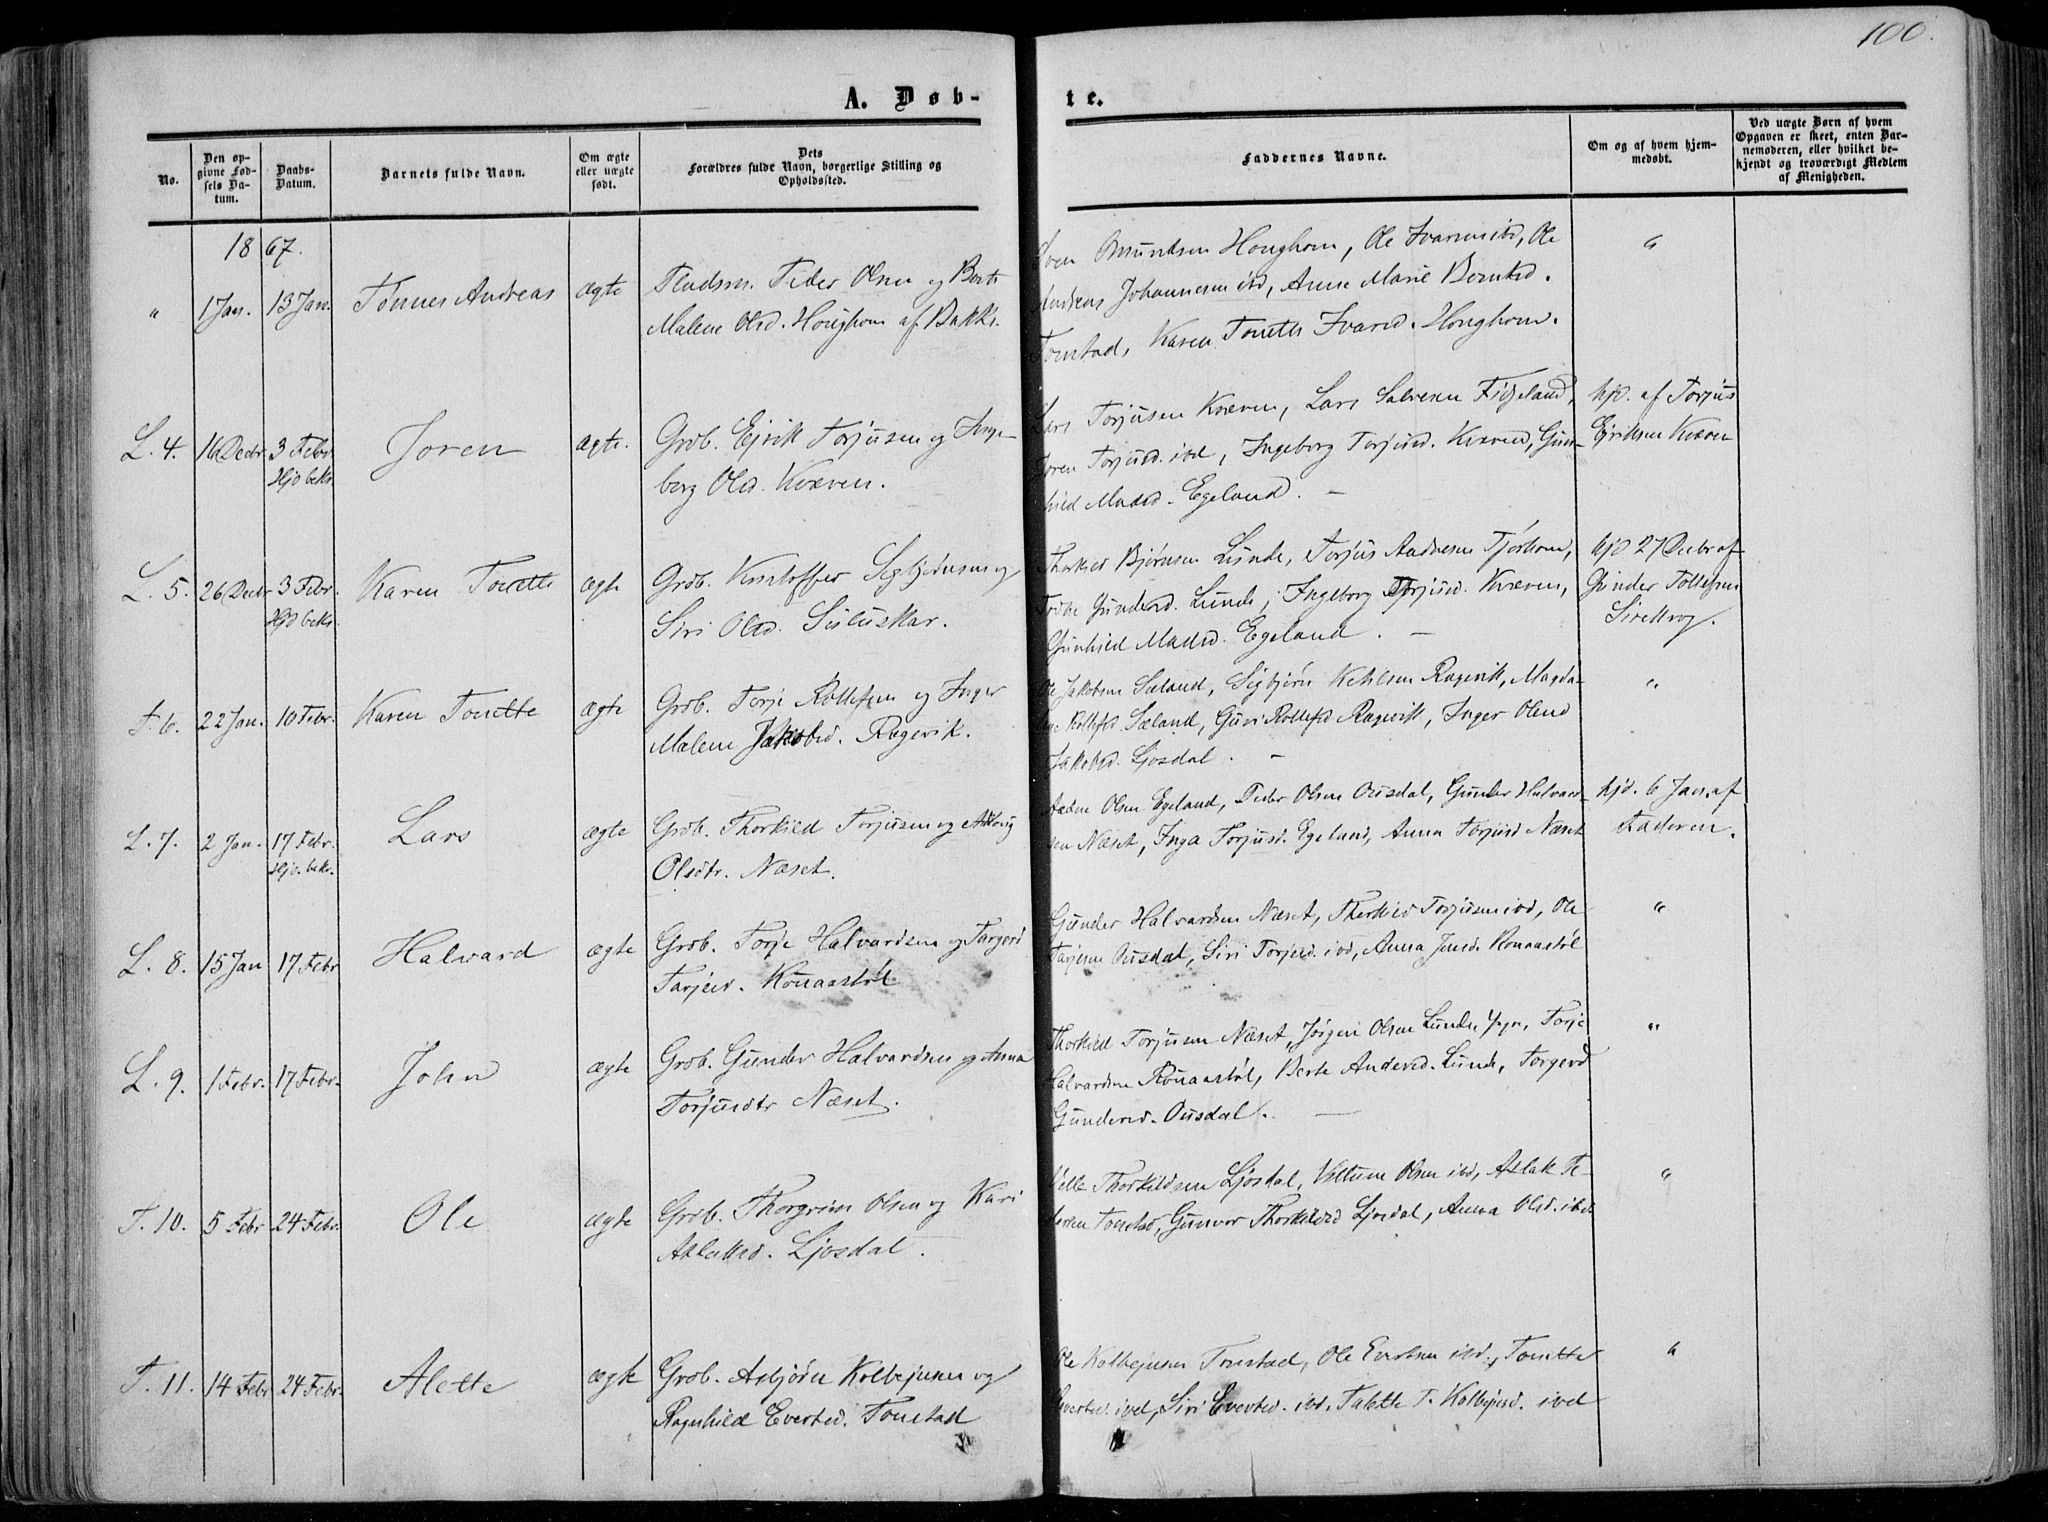 100.
A. Døbte.
No.
Den opgivne Fødsels Datum.
Daabs-Datum.
Barnets fulde Navn.
Om ægte eller uægte født.
Dets Forældres fulde Navn, borgerlige Stilling og Opholdssted.
Faddernes Navne.
Om og af hvem hjemmedøbt.
Ved uægte Børn af hvem Opgaven er skeet, enten Barnemoderen, eller hvilket bekjendt og troværdigt Medlem af Menigheden.
1867.
" 1 Jan. 13 Jan. Tønnes Andreas ægte Peder Olsen og Berte
Malene Olsd. Houghom af Bakke.
Sven Omundsen Houghom, Ole Ivarsen ibd, Ole
Andreas Johannesen ibd, Anne Marie Berntsd.
Tonstad, Karen Tonette Ivarsd. Houghom.
"
L. 4. 16 Decbr 3 Febr Hjd bekr. Joren ægte. Grdb. Ejrik Torjusen og Inge-
borg Olsd. Kvæven.
Lars Torjusen Kvæven, Lars Salvesen Fidjeland,
Joren Torjusd. ibd, Ingeborg Torjusd. Kvæven, Gun-
hild Madsd. Egeland. —
hjd. af Torjus
Ejriksen Kvæven
L. 5. 26 Decbr 3 Febr. Hjd bekr. Karen Tonette ægte Grdb. Kristoffer Sigbjørnsen og
Siri Olsd. Suluskar.
Thorkild Bjørnsen Lunde, Torjus Andresen Tjørhom,
Gundersd. Lunde, Ingeborg Torjusd. Kvæven,
Gunhild Madsd. Egeland. —
hjd 27 Decbr af
Gunder Tollefsen
Sirekrog.
T. 6. 22 Jan. 10 Febr. Karen Tonette ægte Grdb. Torje Rollefsen og Inger
Malene Jakobsd. Ragevik.
Ole Jakobsen Sæland, Sigbjørn Ketilsen Ragevik, Magda-
lene Rollefsd. Sæland, Guri Rollefsd Ragevik, Inger Olene
Jakobsd. Ljosdal. —
"
L. 7. 2 Jan. 17 Febr. Hjd. bekr. Lars ægte Grdb. Thorkild Torjusen og Aslaug
Olsdtr. Næset.
Olsen Egeland, Peder Olsen Ousdal, Gunder Halvard-
sen Næset, Inga Torjusd. Egeland, Anna Torjusd Næset
hjd. 6 Jan. af
Faderen.
L. 8. 15 Jan 17 Febr Halvard ægte Grdb. Torje Halvardsen og Torgerd
Tarjeisd. Ronaastøl
Gunder Halvardsen Næset, Thorkild Torjusen ibd, Ole
Tarjesen Ousdal, Siri Torjesd. ibd, Anna Jensd. Ronaastøl
"
L. 9. 1 Febr. 17 Febr. John ægte Grdb. Gunder Halvardsen og Anna
Torjusdtr Næset.
Thorkild Torjusen Næset, Jørgen Olsen Lunde, Torje
Halvardsen Ronaastøl, Berte Andersd. Lunde, Torgerd
Gundersd. Ousdal. —
"
T. 10. 5 Febr 24 Febr. Ole ægte Grdb. Thorgrim Olsen og Kari
Aslaksd. Ljosdal.
Thorkildsen Ljosdal, Olsen ibd, Aslak Pe-
dersen Tonstad, Gunvor Thorkildsd Ljosdal, Anna Olsd. ibd
"
T. 11. 14 Febr 24 Febr. Alette ægte Grdb. Asbjørn Kolbejnsen og
Ragnhild Evertsd. Tonstad
Ole Kolbejnsen Tonstad, Ole Evertsen ibd., Tonette
Evertsd. ibd, Siri Evertsd. ibd. Talette T. Kolbejnsd. ibd
"